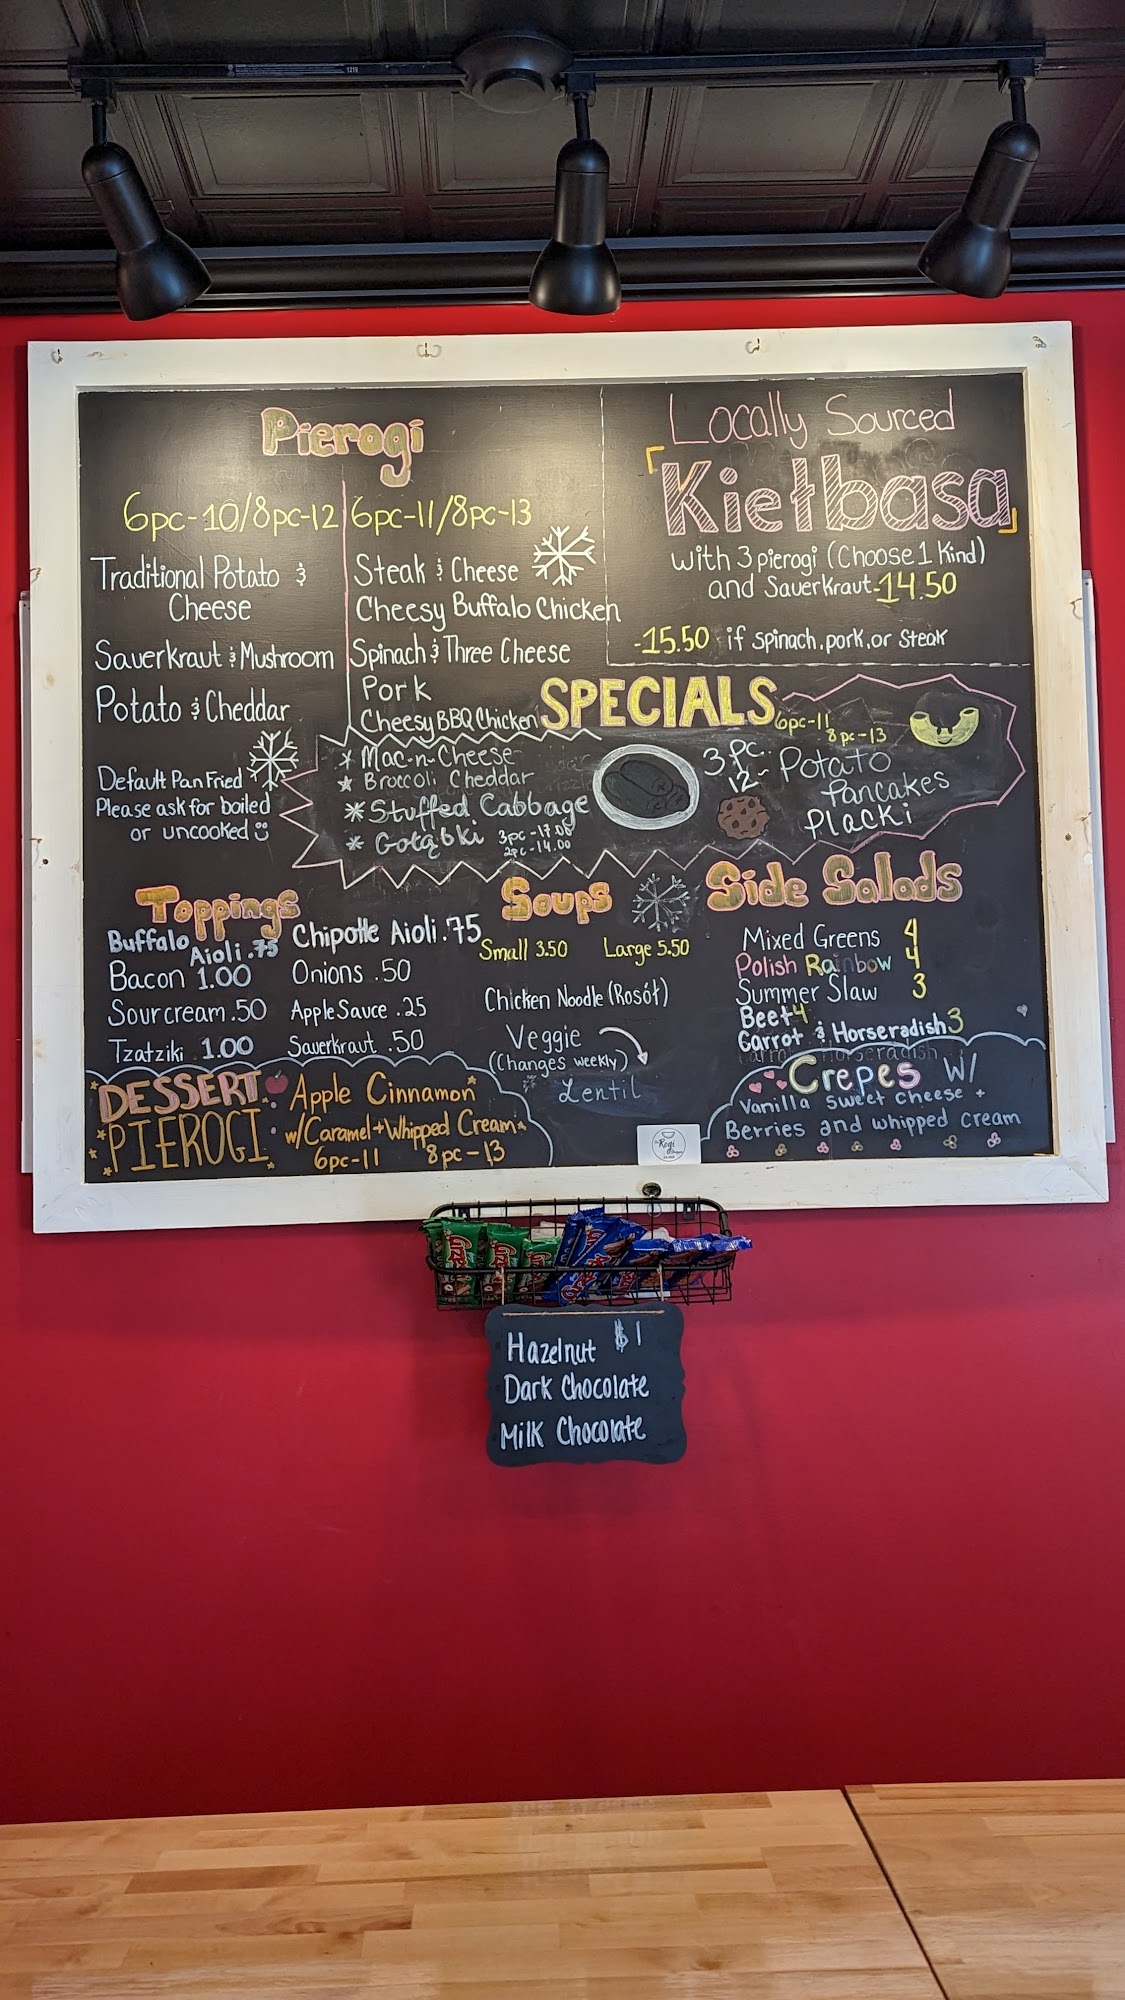 Pierogi
6pc-10/8pc-12
Traditional Potato &
Cheese
Sauerkraut & Mushroom
Potato & Cheddar
Default Pan Fried
Please ask for boiled
or uncooked
6pc-11/8pc-13
Steak & Cheese
Cheesy Buffalo Chicken
Spinach & Three Cheese
Pork
Cheesy BBQ Chicken
Locally Sourced
Kiełbasa
with 3 pierogi (Choose 1 Kind)
and Sauerkraut-14.50
-15.50 if spinach, pork, or steak
SPECIALS
6pc-11
8pc-13
* Mac-n-Cheese
* Broccoli Cheddar
* Stuffed Cabbage
* Gołąbki 3pc-17.00
2pc-14.00
3pc..
12-Potato
Pancakes
Placki
Toppings
Buffalo Aioli .75
Bacon 1.00
Sour cream .50
Tzatziki 1.00
Chipotle Aioli .75
Onions .50
Apple Sauce .25
Sauerkraut .50
Soups
Small 3.50 Large 5.50
Chicken Noodle (Rosół)
Veggie
(Changes weekly)
Lentil
Side Salads
Mixed Greens 4
Polish Rainbow 4
Summer Slaw 3
Beet 4
Carrot & Horseradish 3
DESSERT
PIEROGI
Apple Cinnamon
w/Caramel+Whipped Cream
6pc-11 8pc-13
Crepes w/
Vanilla sweet cheese +
Berries and whipped cream
Hazelnut $1
Dark Chocolate
Milk Chocolate